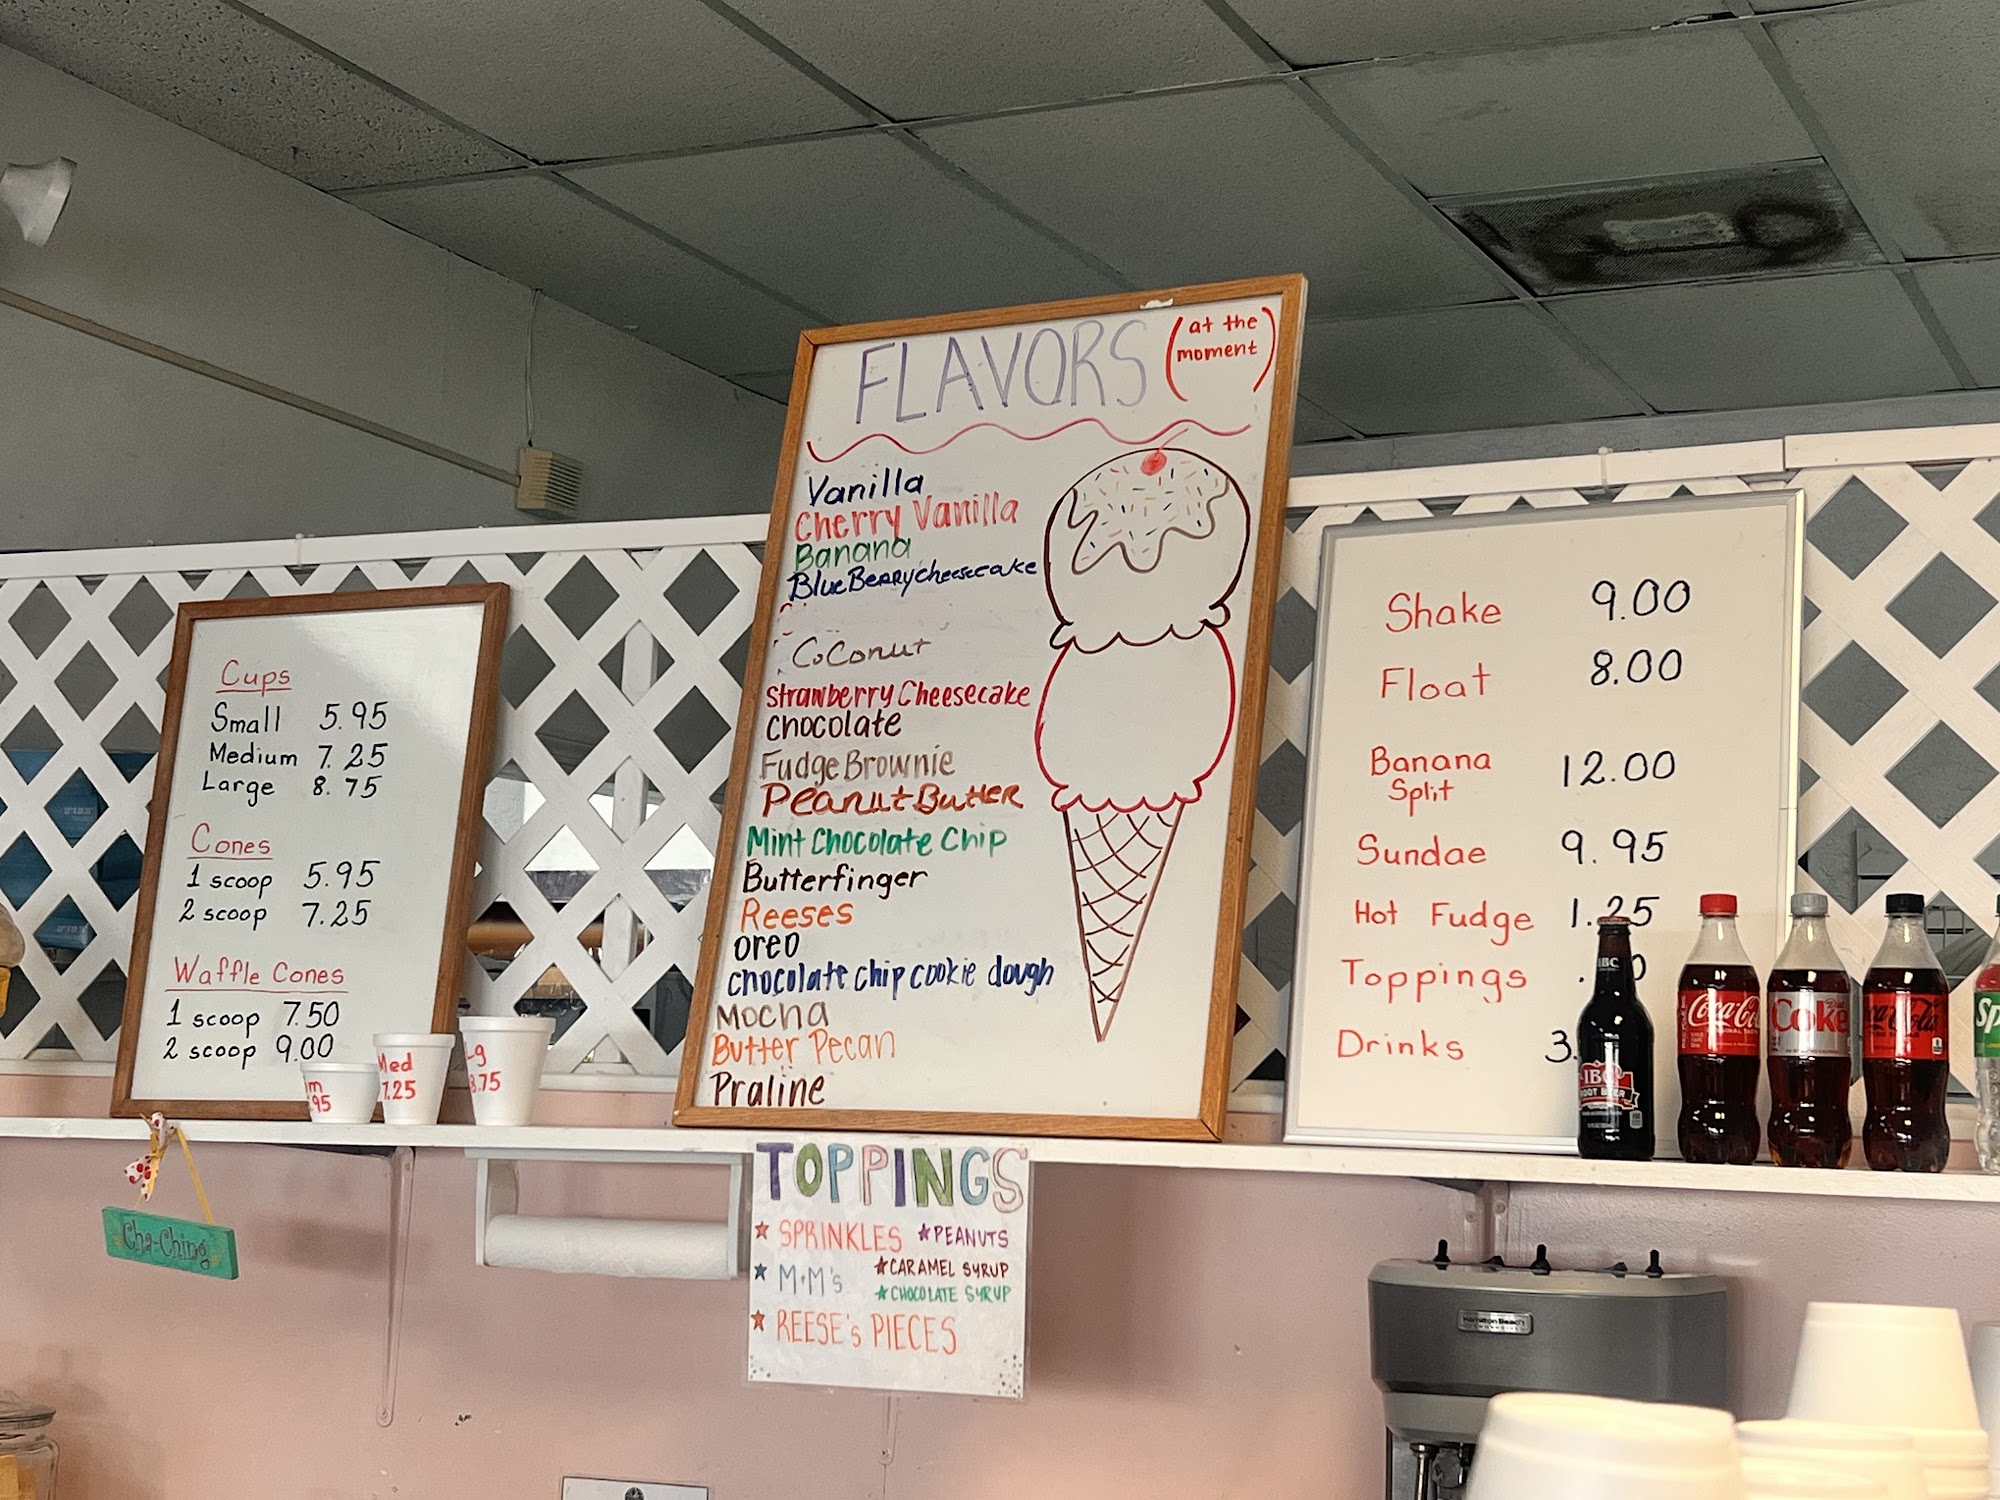 FLAVORS
(at the
moment)
Vanilla
Cherry Vanilla
Banana
BlueBerry cheesecake
CoConut
strawberry Cheesecake
chocolate
Fudge Brownie
Peanut Butter
Mint Chocolate Chip
Butterfinger
Reeses
oreo
chocolate chip cookie dough
Mocha
Butter Pecan
Praline
Cups
Small 5.95
Medium 7.25
Large 8.75
Cones
1 scoop 5.95
2 scoop 7.25
Waffle Cones
1 scoop 7.50
2 scoop 9.00
Med
7.25
Shake 9.00
Float 8.00
Banana
Split 12.00
Sundae 9.95
Hot Fudge 1.25
Toppings
Drinks 3.
IBC
IBC
ROOT BEER
Coca-Cola
Coke
Sp
Cha-Ching
TOPPINGS
★ SPRINKLES ★ PEANUTS
★ M+M's ★ CARAMEL SYRUP
★ CHOCOLATE SYRUP
★ REESE's PIECES
Hamilton Beach